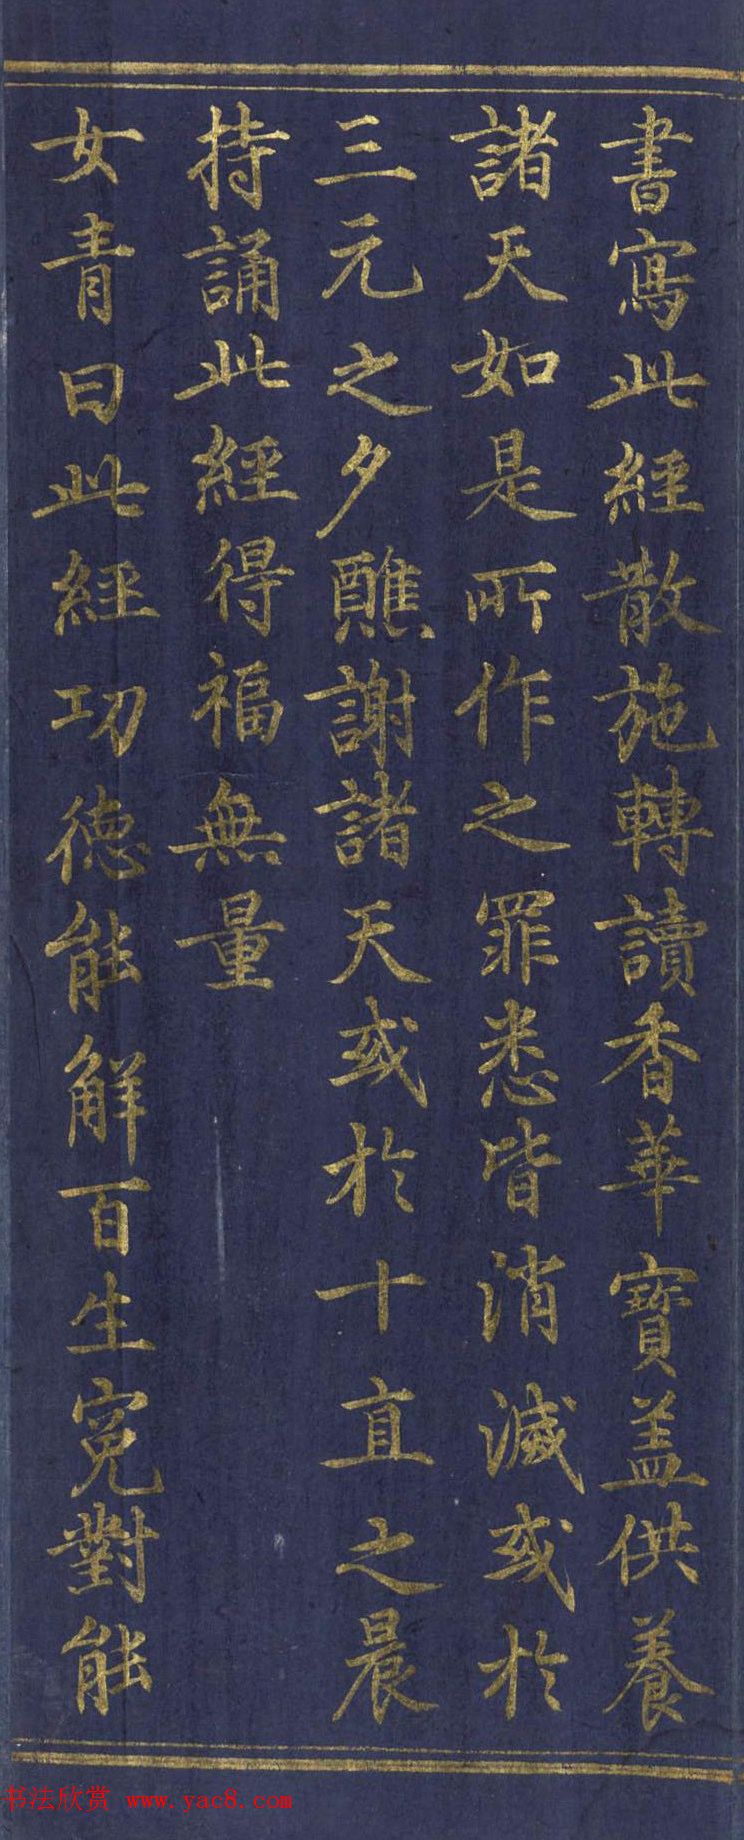 書寫此經散施轉讀香華寶盖供養
諸天如是所作之罪悉皆消滅或於
三元之夕醮謝諸天或於十直之晨
持誦此經得福無量
女青曰此經功德能解百生寃對能
书法欣赏 www.yac8.com